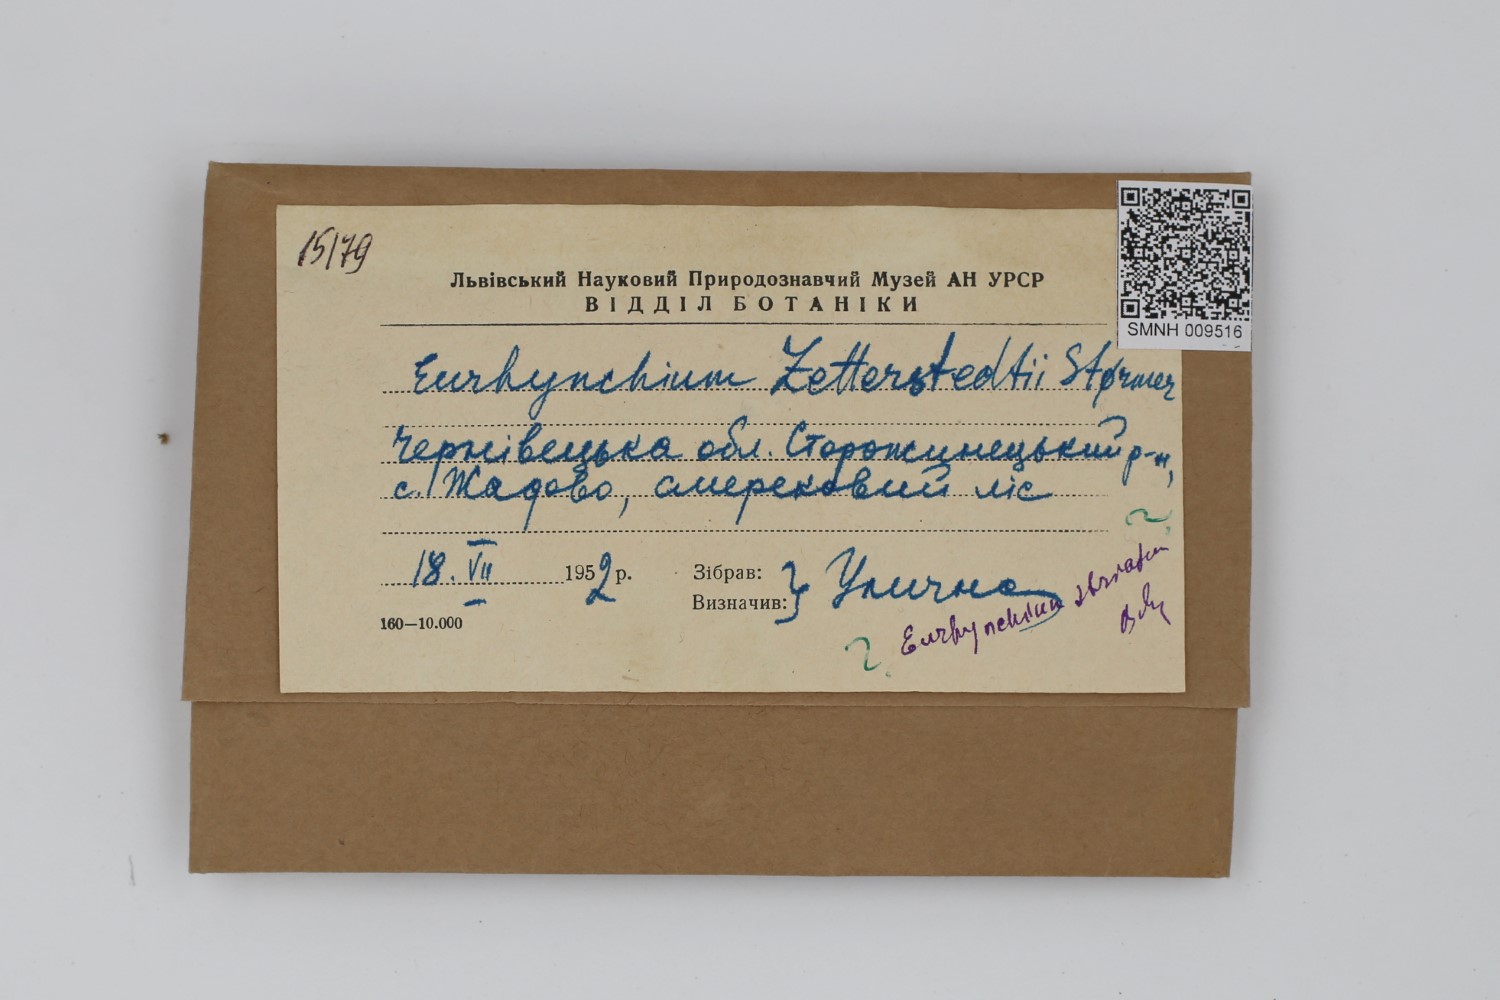 15/79
Львівський Науковий Природознавчий Музей АН УРСР
ВІДДІЛ БОТАНІКИ
SMNH 009516
Eurhynchium Zetterstedtii Størmer
Чернівецька обл. Сторожинецький р-н,
с. Жадово, смерековий ліс
18. VII 1952 р.
Зібрав:
Визначив: Уличн
160—10.000
? Eurhynchium ?